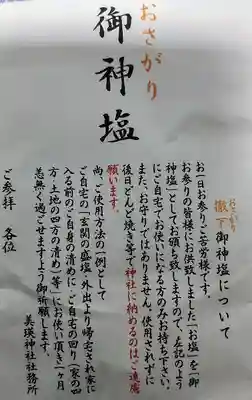 おさがり
御神塩
おさがり
撤下御神塩について
お一日お参りご苦労様です。
お参りの皆様にお供致しました「お塩」を「御
神塩」としてお頒ち致しますので、左記のよう
にご自宅でお使いになる方のみお持ち下さい。
また、お守りではありません。使用されずに
後日どんど焼き等で神社に納めるのはご遠慮
願います。
尚、ご使用方法の一例として
ご自宅の「玄関の盛塩・外出より帰宅され家に
入る前のご自身の清めに・ご自宅の回り(家の四
方・土地の四方の清め)等」にお使い頂き一ヶ月
恙無く過ごせますよう御祈願します。
美瑛神社社務所
ご参拝 各位